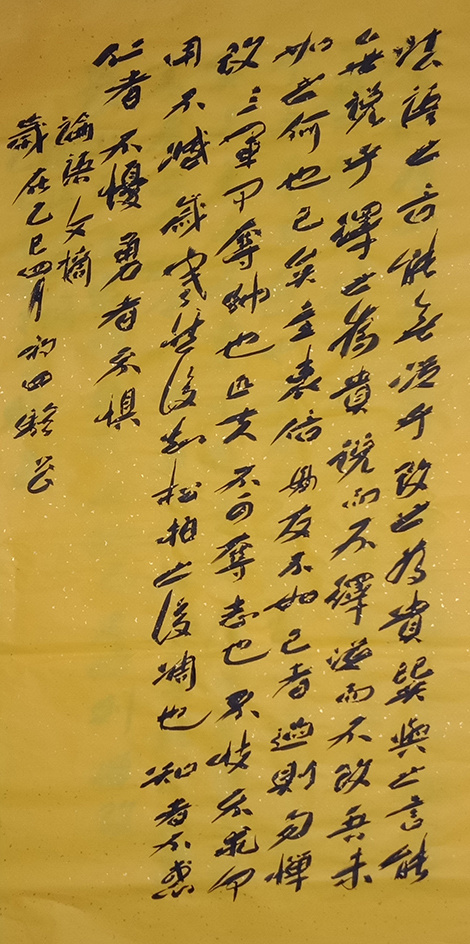 法語之言能無從乎改之為貴巽與之言能
無說乎繹之為貴說而不繹從而不改吾末
如之何也已矣主忠信毋友不如己者過則勿憚
改三軍可奪帥也匹夫不可奪志也不忮不求何
用不臧歲寒然後知松柏之後凋也知者不惑
仁者不懮勇者不懼
論語文摘
歲在乙巳四月初四